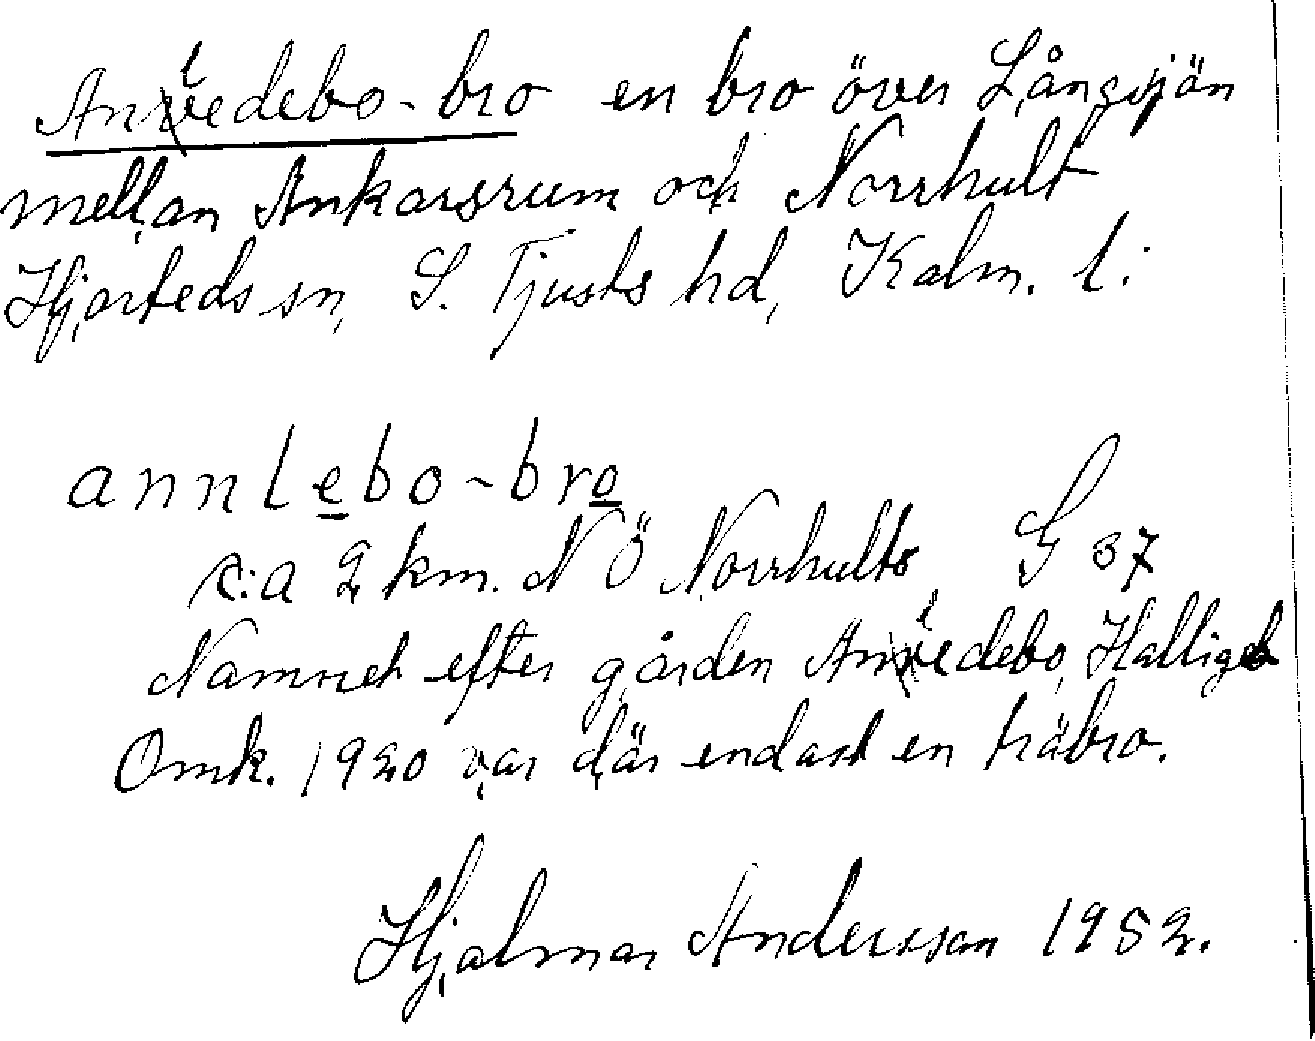 Anledebo-bro en bro över Långsjön
mellan Ankarsrum och Norrhult
Hjorteds sn, S. Tjusts hd, Kalm. l:
annlebo-bro
c:a 2 km. N Ö Norrhults G 37
Namnet efter gården Anledebo, Hallingeb
Omk. 1920 var där endast en träbro.
Hjalmar Andersson 1952.